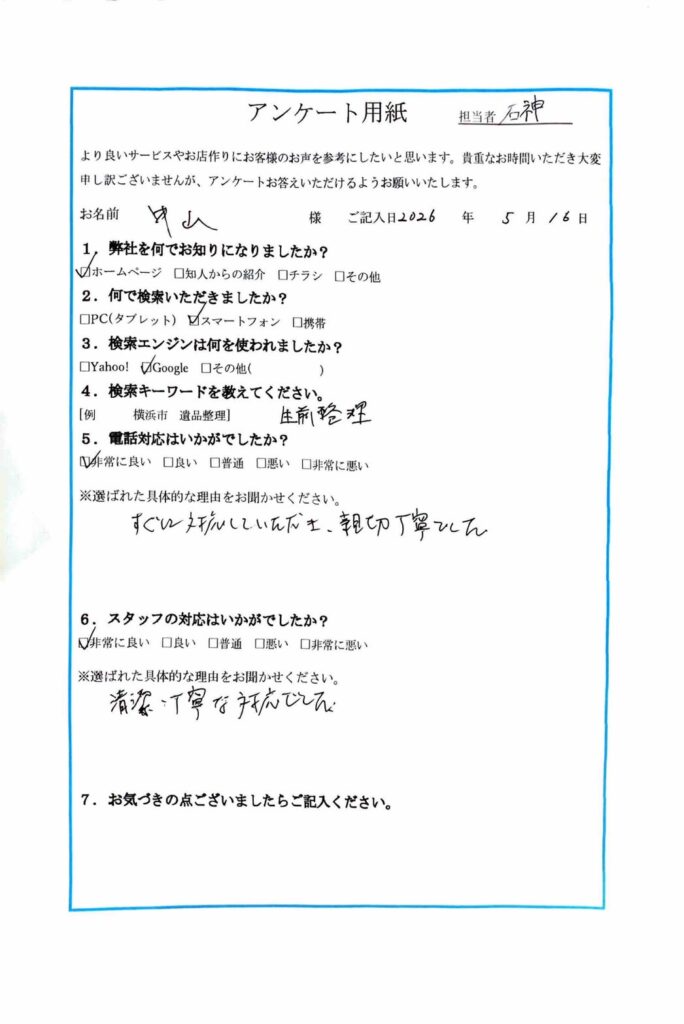 アンケート用紙
担当者 石神
より良いサービスやお店作りにお客様のお声を参考にしたいと思います。貴重なお時間いただき大変
申し訳ございませんが、アンケートお答えいただけるようお願いいたします。
お名前 中山 様 ご記入日2026 年 5 月 16 日
1．弊社を何でお知りになりましたか？
☑ホームページ □知人からの紹介 □チラシ □その他
2．何で検索いただきましたか？
□PC(タブレット) ☑スマートフォン □携帯
3．検索エンジンは何を使われましたか？
□Yahoo! ☑Google □その他( )
4．検索キーワードを教えてください。
[例 横浜市 遺品整理] 生前整理
5．電話対応はいかがでしたか？
☑非常に良い □良い □普通 □悪い □非常に悪い
※選ばれた具体的な理由をお聞かせください。
すぐに対応していただき、親切丁寧でした
6．スタッフの対応はいかがでしたか？
☑非常に良い □良い □普通 □悪い □非常に悪い
※選ばれた具体的な理由をお聞かせください。
清潔・丁寧な対応でした
7．お気づきの点ございましたらご記入ください。